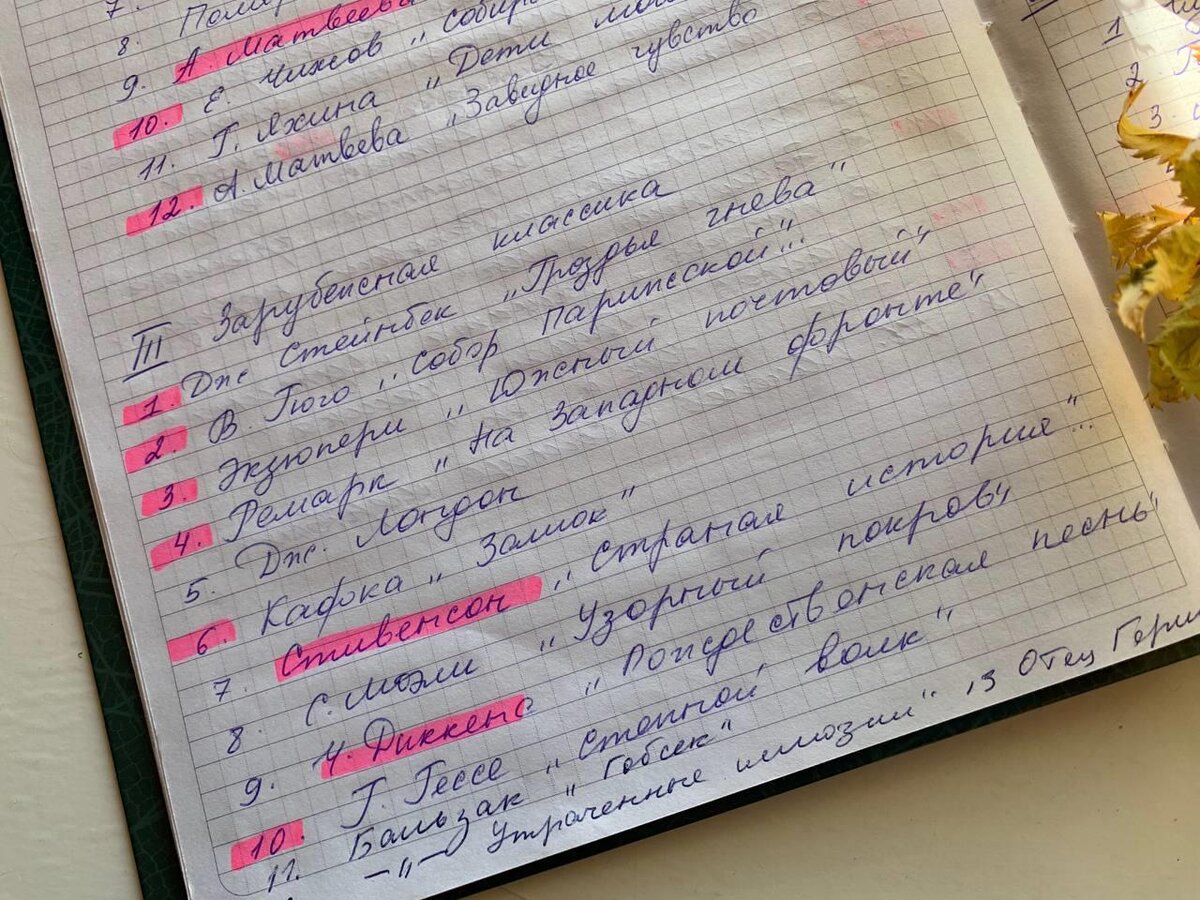 7.
8.
9. А. Матвеева
10. Е. Чижов „ Собира
11. Г. Яхина „ Дети мо
12. А. Матвеева „ Завидное чувство
III Зарубежная классика
1. Дж. Стейнбек „Гроздья гнева"
2. В Гюго „ Собор Парижской"...
3. Экзюпери „ Южный почтовый"
4. Ремарк „ На Западном фронте"
5. Дж. Лондон
6. Кафка „ Замок "
7. Стивенсон „ Страная история"...
8. С. Моэм „ Узорный покров"
9. Ч. Диккенс „ Рождественская песнь"
10. Г. Гессе „ Степной волк"
11. Бальзак „ Гобсек"
— „ — Утраченные иллюзии" , Отец Гори
1
2.
3.